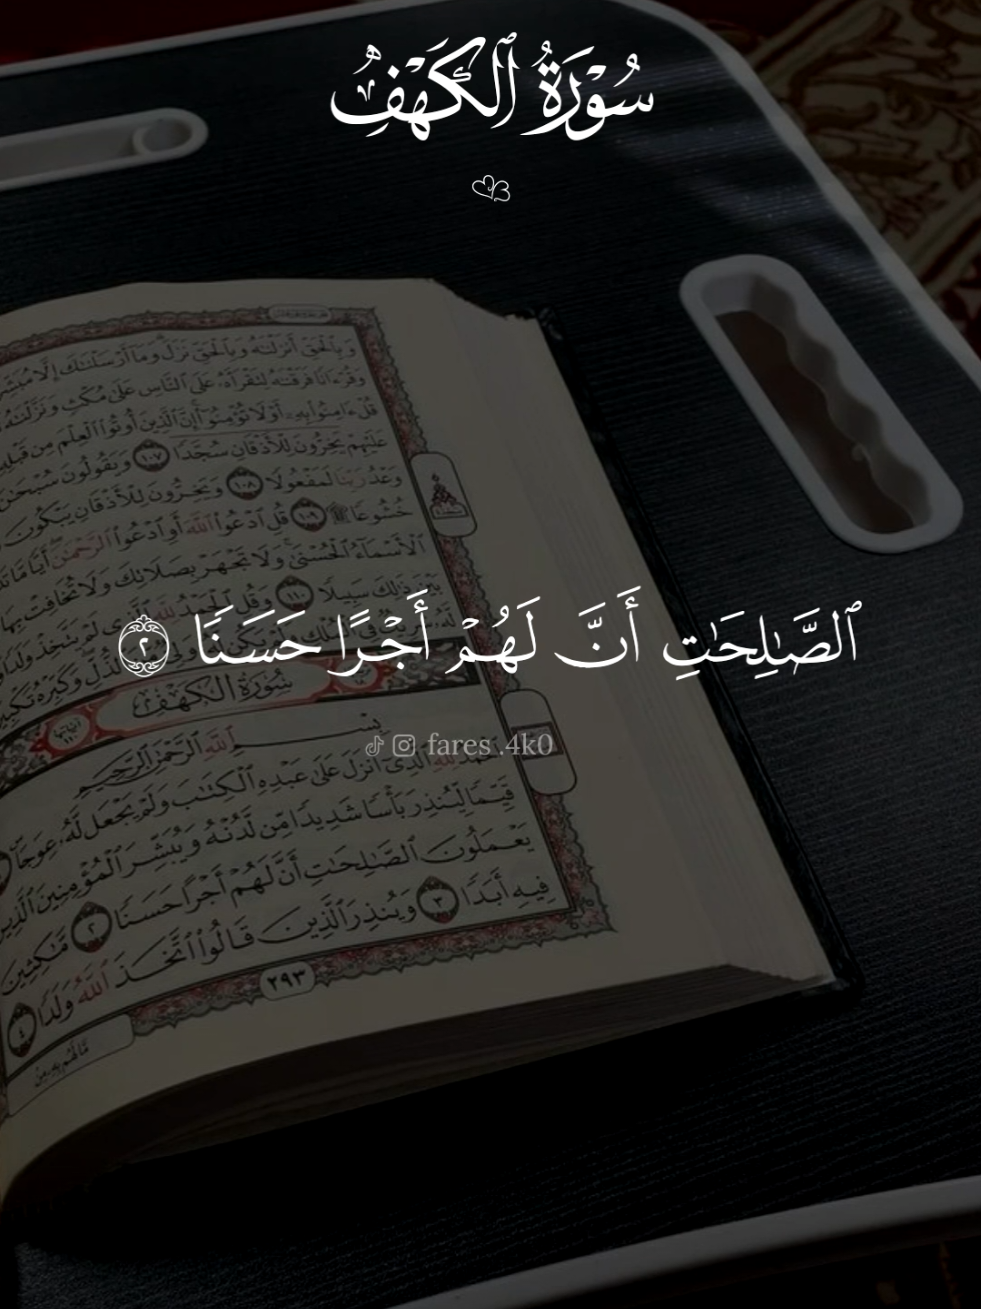 سُوْرَةُ ٱلْكَهْفِ
ٱلصَّٰلِحَٰتِ أَنَّ لَهُمْ أَجْرًا حَسَنًا ٢
fares .4k0
وَبِٱلْحَقِّ أَنزَلْنَٰهُ وَبِٱلْحَقِّ نَزَلَ وَمَآ أَرْسَلْنَٰكَ إِلَّا
وَقُرْءَانًا فَرَقْنَٰهُ لِتَقْرَأَهُۥ عَلَى ٱلنَّاسِ عَلَىٰ مُكْثٍ وَنَزَّلْنَٰهُ
قُلْ ءَامِنُوا۟ بِهِۦٓ أَوْ لَا تُؤْمِنُوٓا۟ إِنَّ ٱلَّذِينَ أُوتُوا۟ ٱلْعِلْمَ مِن
عَلَيْهِمْ يَخِرُّونَ لِلْأَذْقَانِ سُجَّدًا ١٠٧ وَيَقُولُونَ
وَعْدُ رَبِّنَا لَمَفْعُولًا ١٠٨ وَيَخِرُّونَ لِلْأَذْقَانِ يَبْكُونَ
خُشُوعًا ۩ ١٠٩ قُلِ ٱدْعُوا۟ ٱللَّهَ أَوِ ٱدْعُوا۟ ٱلرَّحْمَٰنَ أَيًّا مَّا
ٱلْأَسْمَآءُ ٱلْحُسْنَىٰ وَلَا تَجْهَرْ بِصَلَاتِكَ وَلَا تُخَافِتْ بِهَا
ذَٰلِكَ سَبِيلًا ١١٠ وَقُلِ ٱلْحَمْدُ لِلَّهِ
سُورَةُ الْكَهْفِ
بِسْمِ ٱللَّهِ ٱلرَّحْمَٰنِ ٱلرَّحِيمِ
ٱلَّذِىٓ أَنزَلَ عَلَىٰ عَبْدِهِ ٱلْكِتَٰبَ وَلَمْ يَجْعَل لَّهُۥ عِوَجَا
قَيِّمًا لِّيُنذِرَ بَأْسًا شَدِيدًا مِّن لَّدُنْهُ وَيُبَشِّرَ ٱلْمُؤْمِنِينَ ٱلَّذِينَ
يَعْمَلُونَ ٱلصَّٰلِحَٰتِ أَنَّ لَهُمْ أَجْرًا حَسَنًا ٢ مَّٰكِثِينَ
فِيهِ أَبَدًا ٣ وَيُنذِرَ ٱلَّذِينَ قَالُوا۟ ٱتَّخَذَ ٱللَّهُ وَلَدًا ٤
٢٩٣
مَّا لَهُم بِهِۦ مِنْ